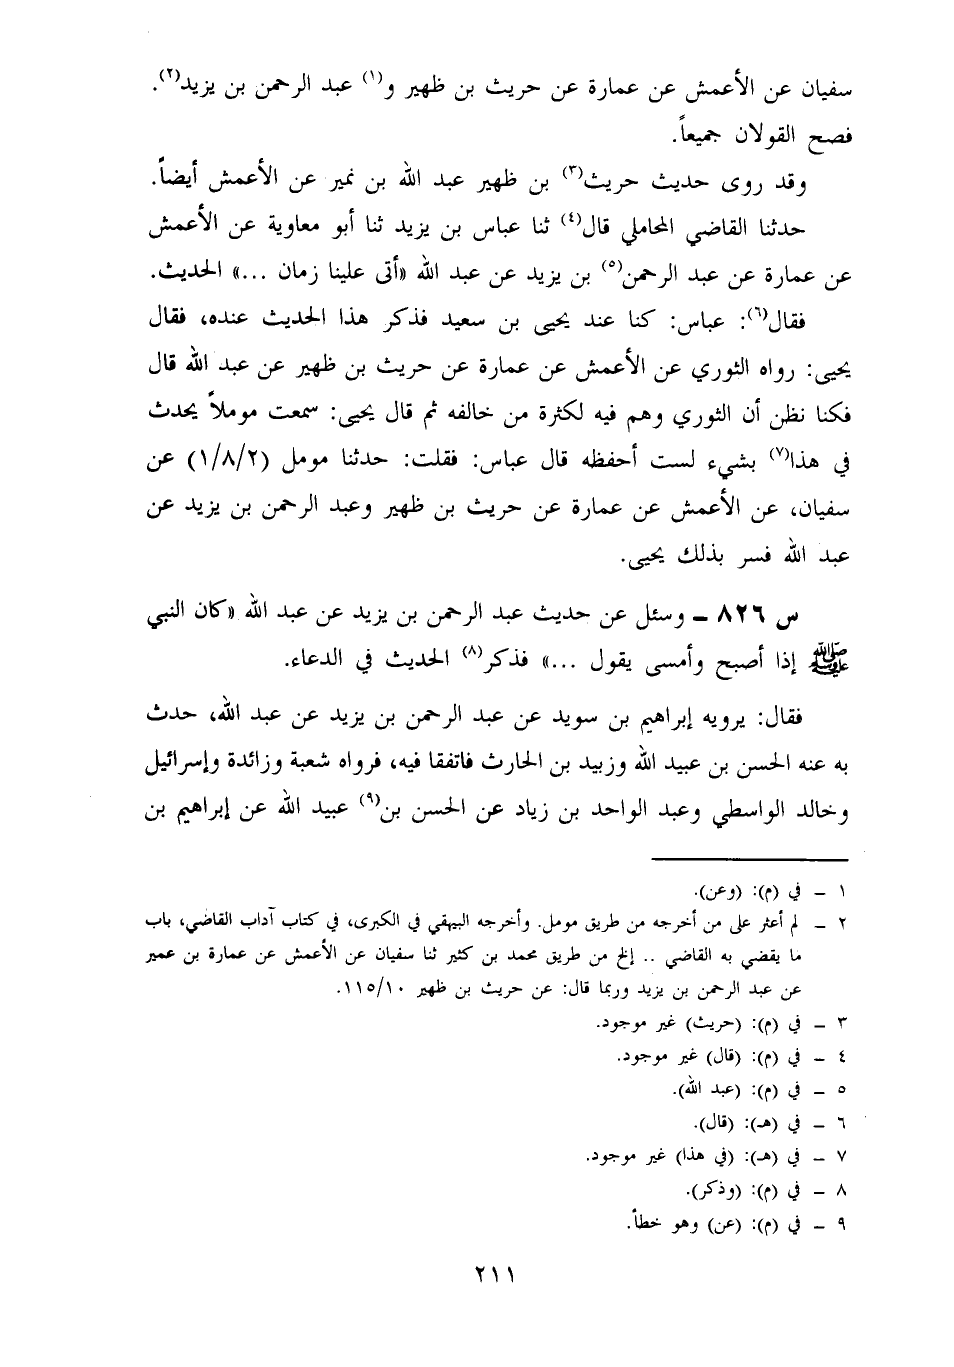 سفيان عن الأعمش عن عمارة عن حريث بن ظهير و(١) عبد الرحمن بن يزيد(٢).
فصح القولان جميعاً.
وقد روى حديث حريث(٣) بن ظهير عبد الله بن نمير عن الأعمش أيضاً.
حدثنا القاضي المحاملي قال(٤) ثنا عباس بن يزيد ثنا أبو معاوية عن الأعمش
عن عمارة عن عبد الرحمن(٥) بن يزيد عن عبد الله «أتى علينا زمان ...» الحديث.
فقال(٦): عباس: كنا عند يحيى بن سعيد فذكر هذا الحديث عنده، فقال
يحيى: رواه الثوري عن الأعمش عن عمارة عن حريث بن ظهير عن عبد الله قال
فكنا نظن أن الثوري وهم فيه لكثرة من خالفه ثم قال يحيى: سمعت موملاً يحدث
في هذا(٧) بشيء لست أحفظه قال عباس: فقلت: حدثنا مومل (١/٨/٢) عن
سفيان، عن الأعمش عن عمارة عن حريث بن ظهير وعبد الرحمن بن يزيد عن
عبد الله فسر بذلك يحيى.
س ٨٢٦ ــ وسئل عن حديث عبد الرحمن بن يزيد عن عبد الله «كان النبي
ﷺ إذا أصبح وأمسى يقول ...» فذكر(٨) الحديث في الدعاء.
فقال: يرويه إبراهيم بن سويد عن عبد الرحمن بن يزيد عن عبد الله، حدث
به عنه الحسن بن عبيد الله وزبيد بن الحارث فاتفقا فيه، فرواه شعبة وزائدة وإسرائيل
وخالد الواسطي وعبد الواحد بن زياد عن الحسن بن(٩) عبيد الله عن إبراهيم بن
١ ــ في (م): (وعن).
٢ ــ لم أعثر على من أخرجه من طريق مومل. وأخرجه البيهقي في الكبرى، في كتاب آداب القاضي، باب
ما يقضي به القاضي .. إلخ من طريق محمد بن كثير ثنا سفيان عن الأعمش عن عمارة بن عمير
عن عبد الرحمن بن يزيد وربما قال: عن حريث بن ظهير ١١٥/١٠.
٣ ــ في (م): (حريث) غير موجود.
٤ ــ في (م): (قال) غير موجود.
٥ ــ في (م): (عبد الله).
٦ ــ في (هـ): (قال).
٧ ــ في (هـ): (في هذا) غير موجود.
٨ ــ في (م): (وذكر).
٩ ــ في (م): (عن) وهو خطأ.
٢١١